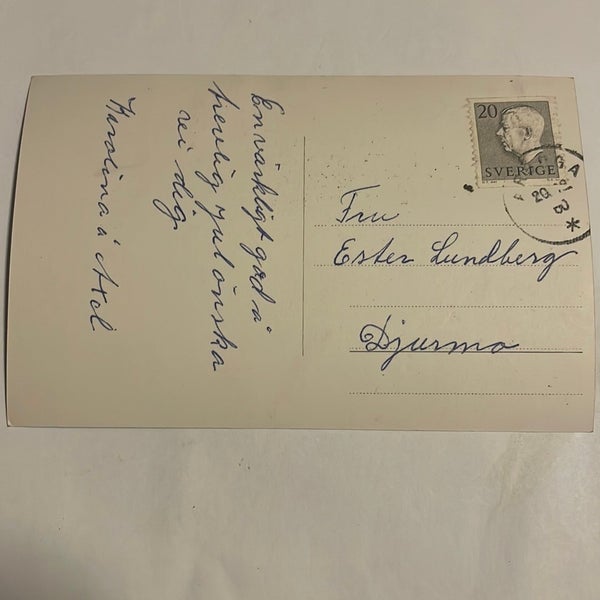 En värkligt god å
trevlig jul önska
vi dig
Karolina å Axel
20
SVERIGE
20
B *
Fru
Ester Lundberg
Djurmo